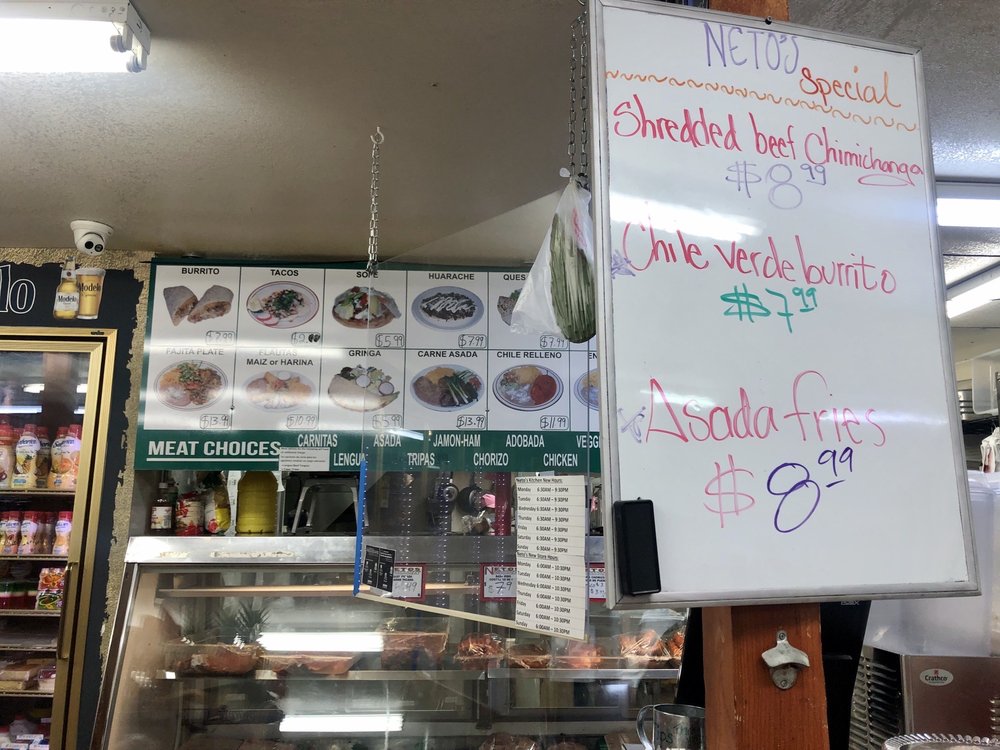 NETO'S
Special
Shredded beef Chimichanga
$8.99
Chile verde burrito
$7.99
Asada fries
$8.99
BURRITO
TACOS
HUARACHE
$7.99
$5.99
$7.99
$7.99
FAJITA PLATE
FLAUTAS
MAIZ or HARINA
GRINGA
CARNE ASADA
CHILE RELLENO
$13.99
$10.99
$5.99
$13.99
$11.99
MEAT CHOICES
CARNITAS
ASADA
JAMON-HAM
ADOBADA
VEGG
LENGU
TRIPAS
CHORIZO
CHICKEN
Neto's Kitchen New Hours:
Monday 6:30AM - 9:30PM
Tuesday 6:30AM - 9:30PM
Wednesday 6:30AM - 9:30PM
Thursday 6:30AM - 9:30PM
Friday 6:30AM - 9:30PM
Saturday 6:30AM - 9:30PM
Sunday 6:30AM - 9:30PM
Neto's New Store Hours:
Monday 6:00AM - 10:30PM
Tuesday 6:00AM - 10:30PM
Wednesday 6:00AM - 10:30PM
Thursday 6:00AM - 10:30PM
Friday 6:00AM - 10:30PM
Saturday 6:00AM - 10:30PM
Sunday 6:00AM - 10:30PM
NETOS
NETOS
lo
Modelo
Crathco